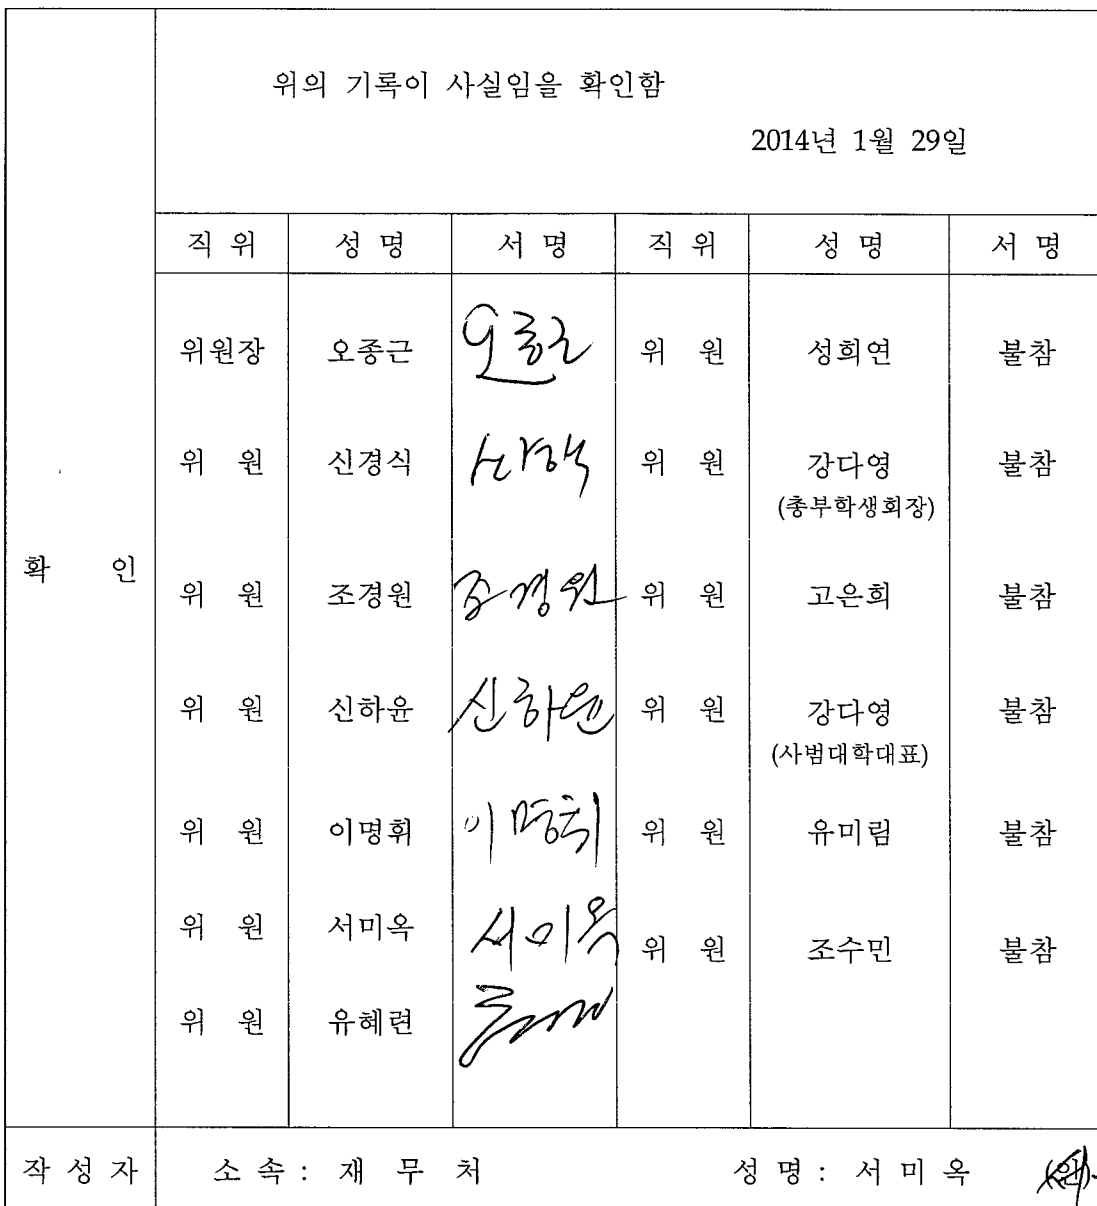 위의 기록이 사실임을 확인함
2014년 1월 29일
직 위 성 명 서 명 직 위 성 명 서 명
위원장 오종근 오종근 위 원 성희연 불참
위 원 신경식 위 원 강다영 불참
(총부학생회장)
확 인
위 원 조경원 조경원 위 원 고은희 불참
위 원 신하윤 신하윤 위 원 강다영 불참
(사범대학대표)
위 원 이명휘 이명휘 위 원 유미림 불참
위 원 서미옥 서미옥 위 원 조수민 불참
위 원 유혜련
작 성 자 소 속 : 재 무 처 성 명 : 서 미 옥 (인)